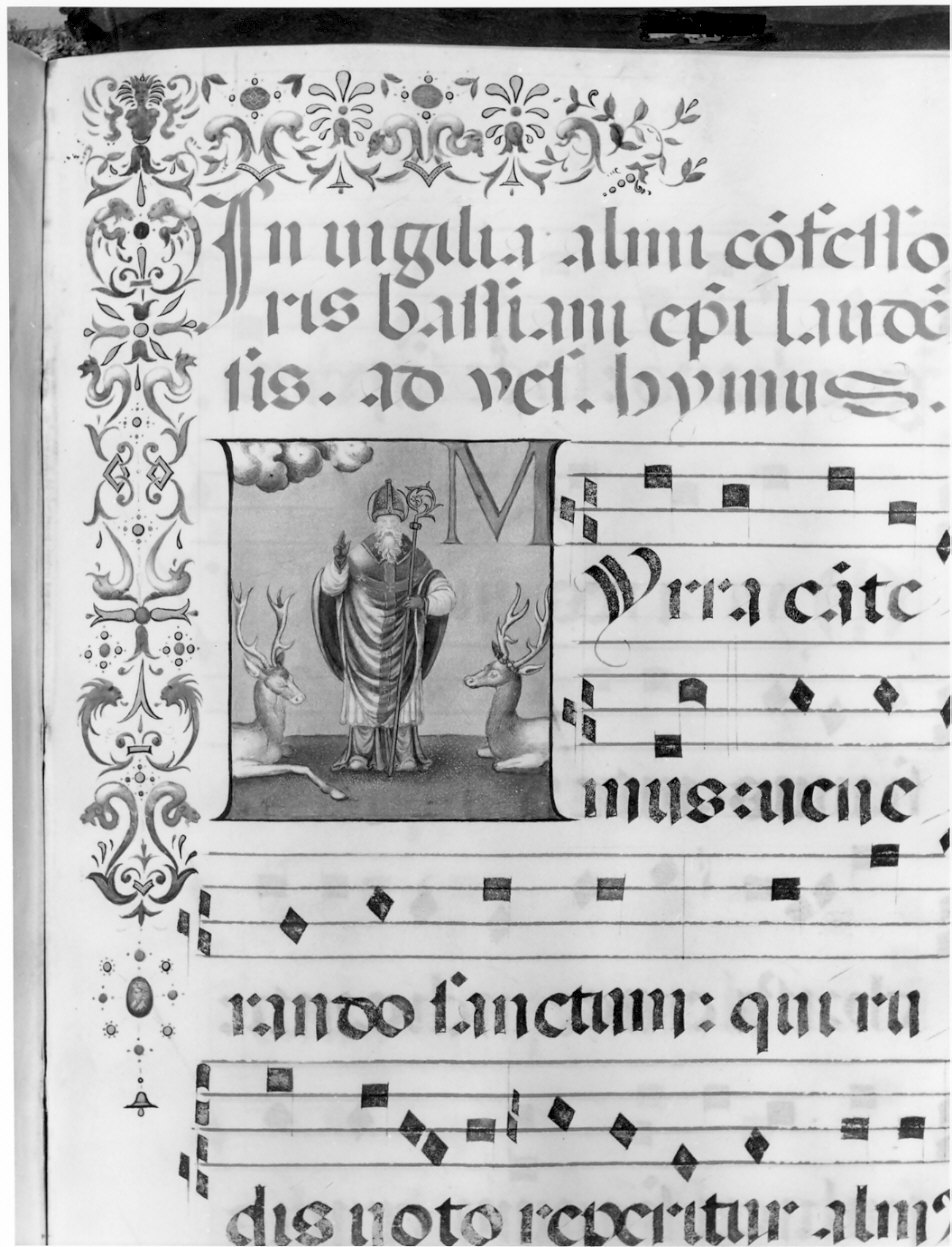 In uigilia almi cōfesso
ris bassiani ep̄i laudē
sis. ad vesṕ. hymnus.
M
Yrra cāte
mus: uene
rando sanctum: qui ru
dis uoto reperitur almꝰ